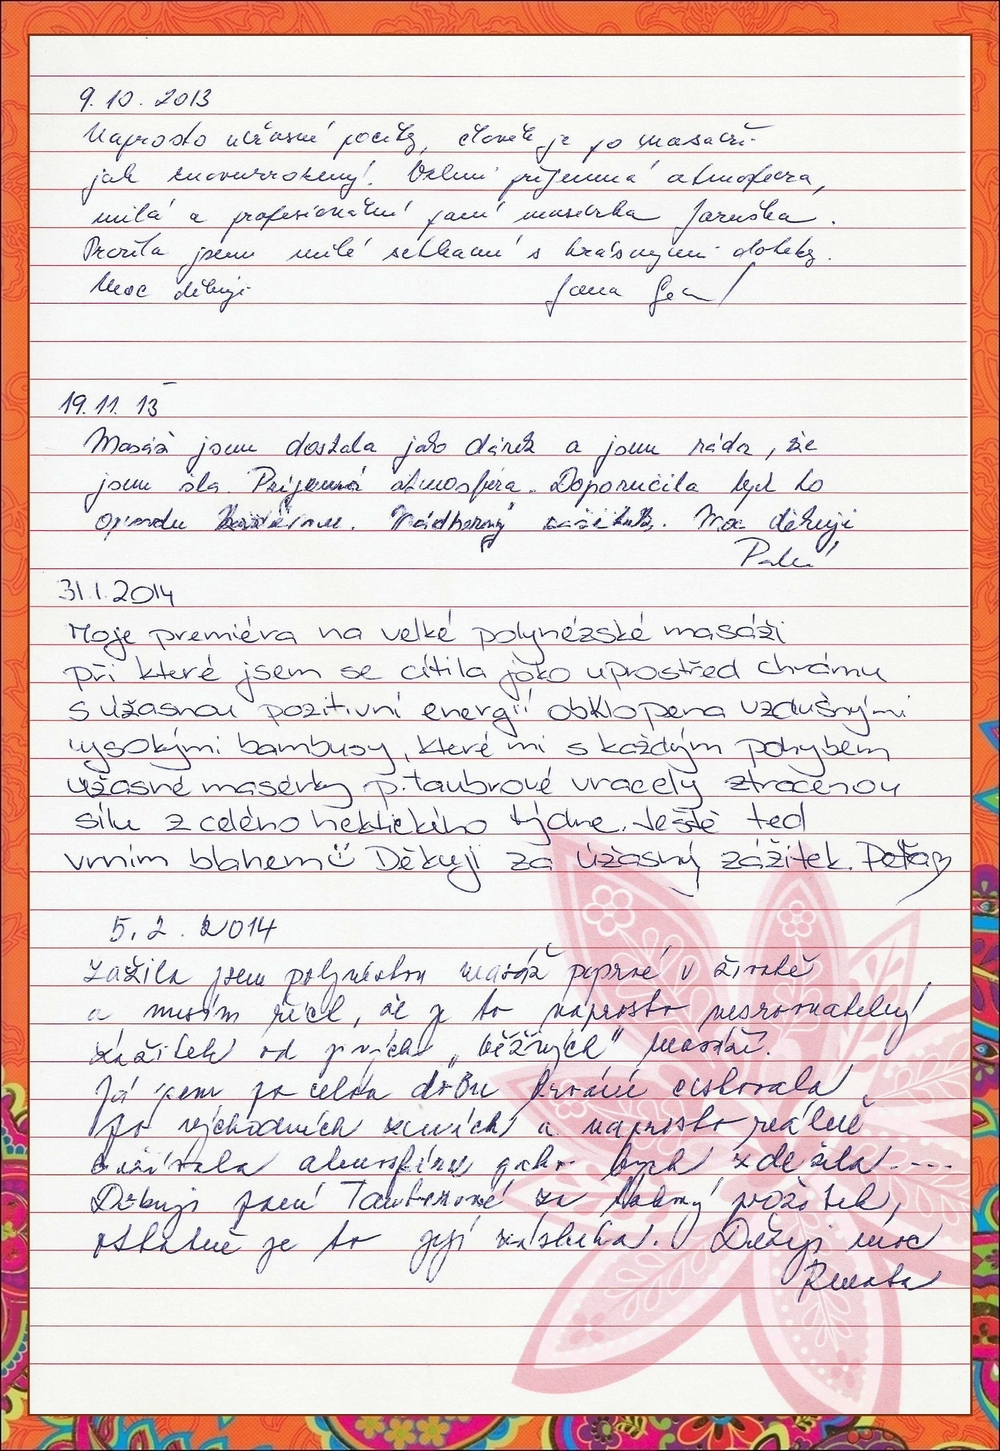 9.10.2013
Naprosto úžasné pocity, člověk je po masáži
jak znovuzrozený! Velmi příjemná atmosféra,
milá a profesionální paní masérka Jaruška.
Prožila jsem milé setkání s krásnými doteky.
Moc děkuji Jana
19.11.13
Masáž jsem dostala jako dárek a jsem ráda, že
jsem šla. Príjemná atmosféra. Doporučila bych to
opravdu. Nádherný zážitek. Moc děkuji
31.1.2014
Moje premiéra na velké polynézské masáži
při které jsem se cítila jako uprostřed chrámu
s úžasnou pozitivní energií obklopena vzdušnými
vysokými bambusy, které mi s každým pohybem
úžasné masérky p. Taubrové vracely ztracenou
sílu z celého hektického týdne. Ještě teď
vrním blahem ü Děkuji za úžasný zážitek.
5.2.2014
Zažila jsem polynéskou masáž poprvé v životě
a musím říct, že je to naprosto nesrovnatelný
zážitek od jiných „běžných" masáží.
Já jsem po celou dobu krásně cestovala
po východních zemích a naprosto reálně
prožívala atmosféru jako bych zde žila....
Děkuji paní Taubrové za krásný prožitek,
ostatně je to její zásluha. Děkuji moc
Renata